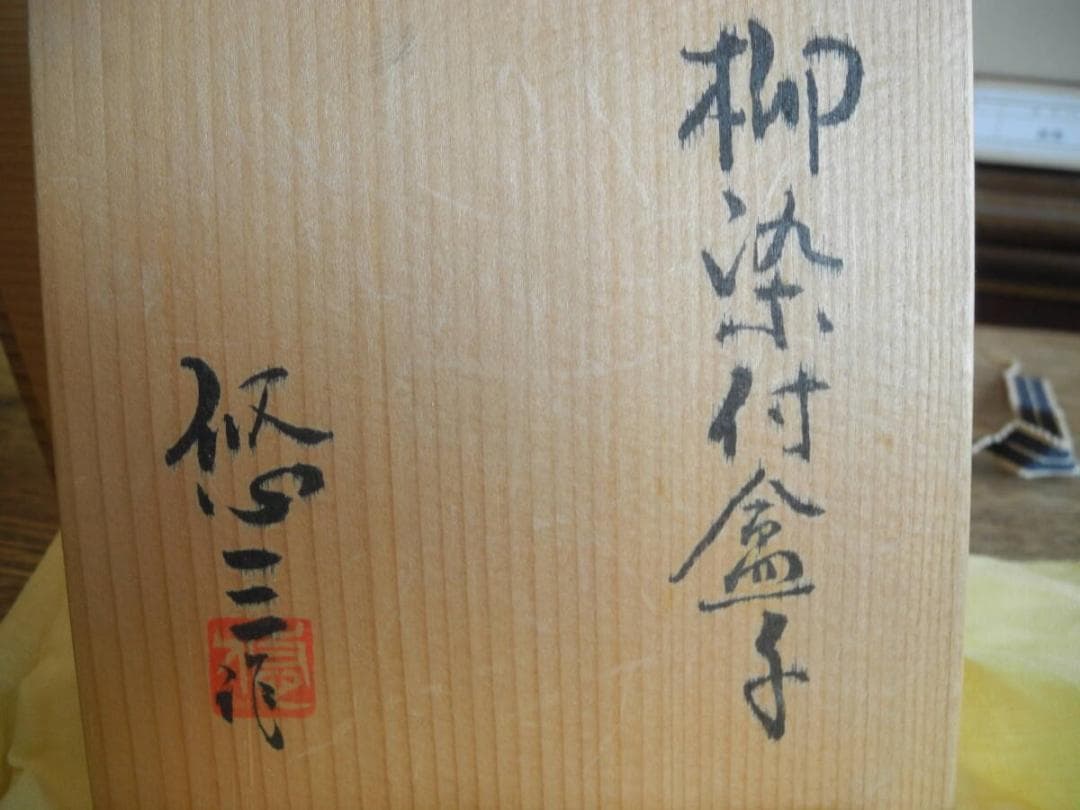 柳染付盒子
悠三作